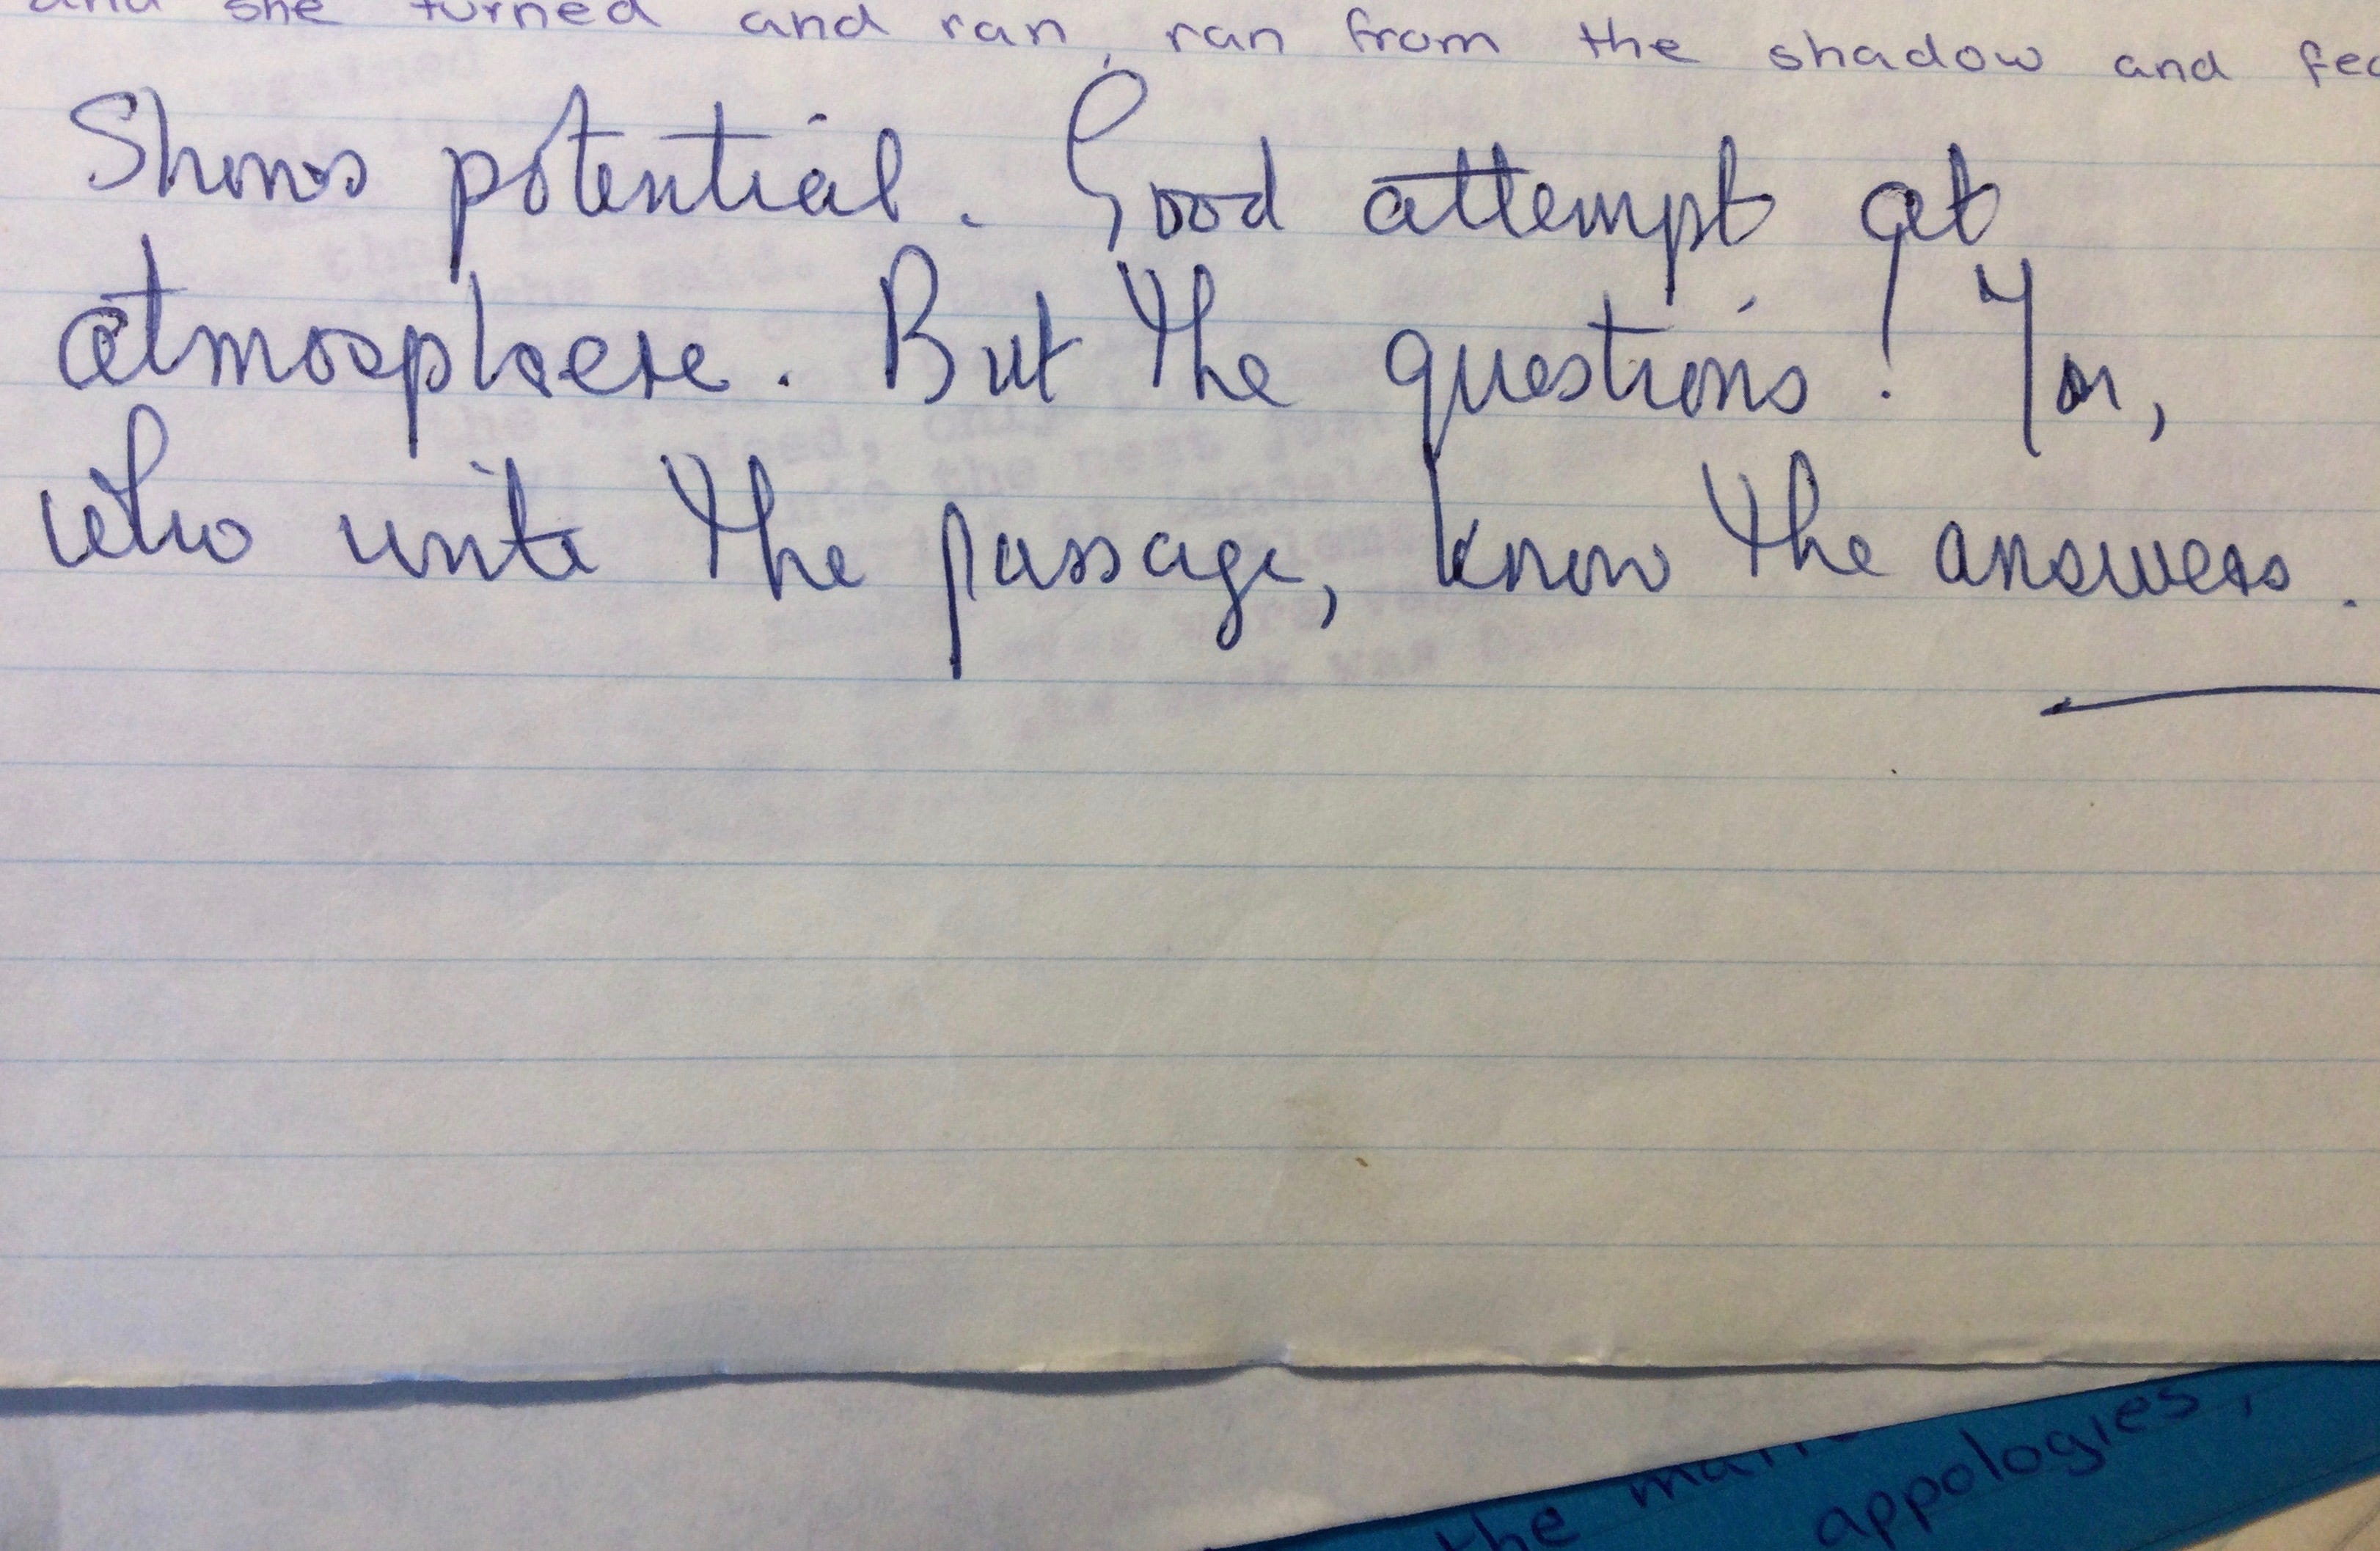 and she turned and ran, ran from the shadow and
Shows potential. Good attempt at
atmosphere. But the questions! You,
who write the passage, know the answers.
the
appologies,